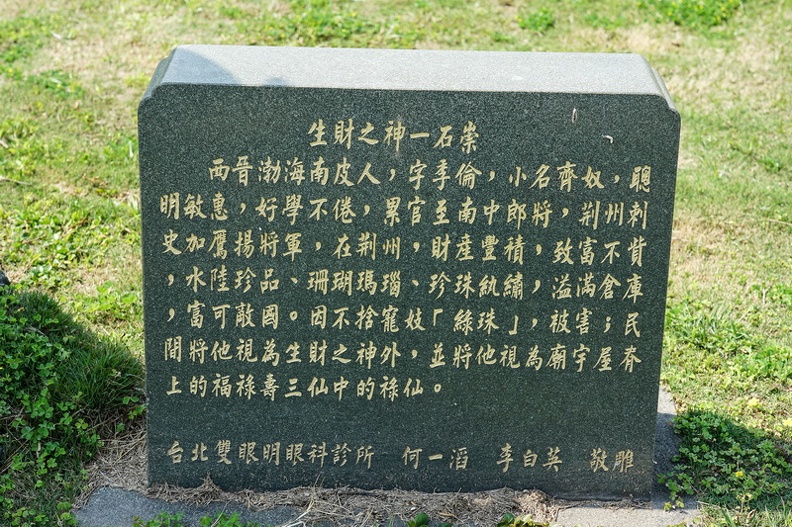 生財之神一石崇
西晉渤海南皮人，字季倫，小名齊奴，聰
明敏惠，好學不倦，累官至南中郎將，荆州刺
史加鷹揚將軍，在荆州，財產豐積，致富不貲
，水陸珍品、珊瑚瑪瑙、珍珠紈繡，溢滿倉庫
，富可敵國。因不捨寵妓「綠珠」，被害；民
間將他視為生財之神外，並將他視為廟宇屋脊
上的福祿壽三仙中的祿仙。
台北雙眼明眼科診所 何一滔 李白英 敬雕